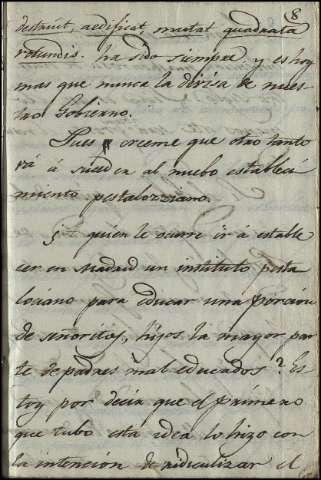 8
destruit, aedificat, mutat quadrata
rotundis. ha sido siempre y es hoy
mas que nunca la divisa de nues
tro Gobierno.
Pues creeme que otro tanto
rá á suceder al nuebo estableci
miento pestalozziano.
quien le ocurre ir á estable
cer en Madrid un instituto pesta
loziano para educar una porcion
de señoritos, hijos la mayor par
te de padres mal educados? Es
toy por decir que el primero
que tubo esta idea lo hizo con
la intencion de ridiculizar el